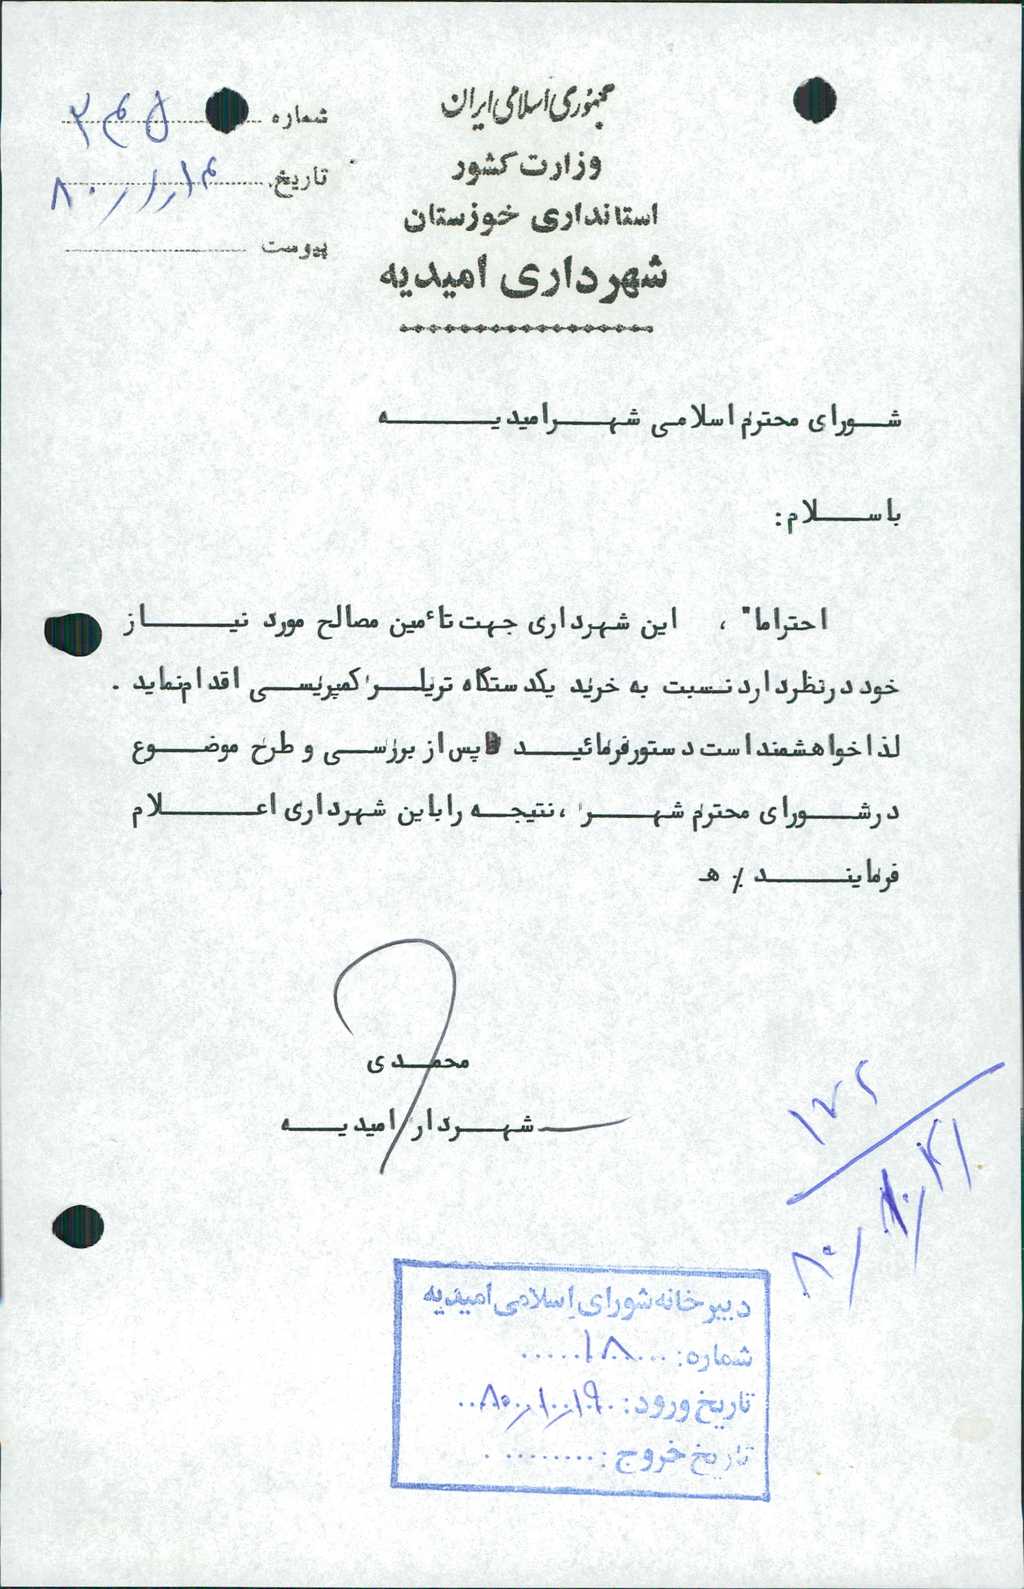 جمهوری اسلامی ایران
وزارت کشور
استانداری خوزستان
شهرداری امیدیه
شماره ۳۴۵
تاریخ ۸۰/۱/۱۴
پیوست
شورای محترم اسلامی شهر امیدیه
با سلام :
احتراما" ، این شهرداری جهت تاٴمین مصالح مورد نیاز
خود در نظر دارد نسبت به خرید یکدستگاه تریلر کمپریسی اقدام نماید .
لذا خواهشمند است دستور فرمائید پس از بررسی و طرح موضوع
در شورای محترم شهر ، نتیجه را باین شهرداری اعلام
فرمایند ٪ هـ
محمدی
شهردار امیدیه
دبیرخانه شورای اسلامی امیدیه
شماره : ۱۸
تاریخ ورود : ۸۰/۱/۱۹
تاریخ خروج :